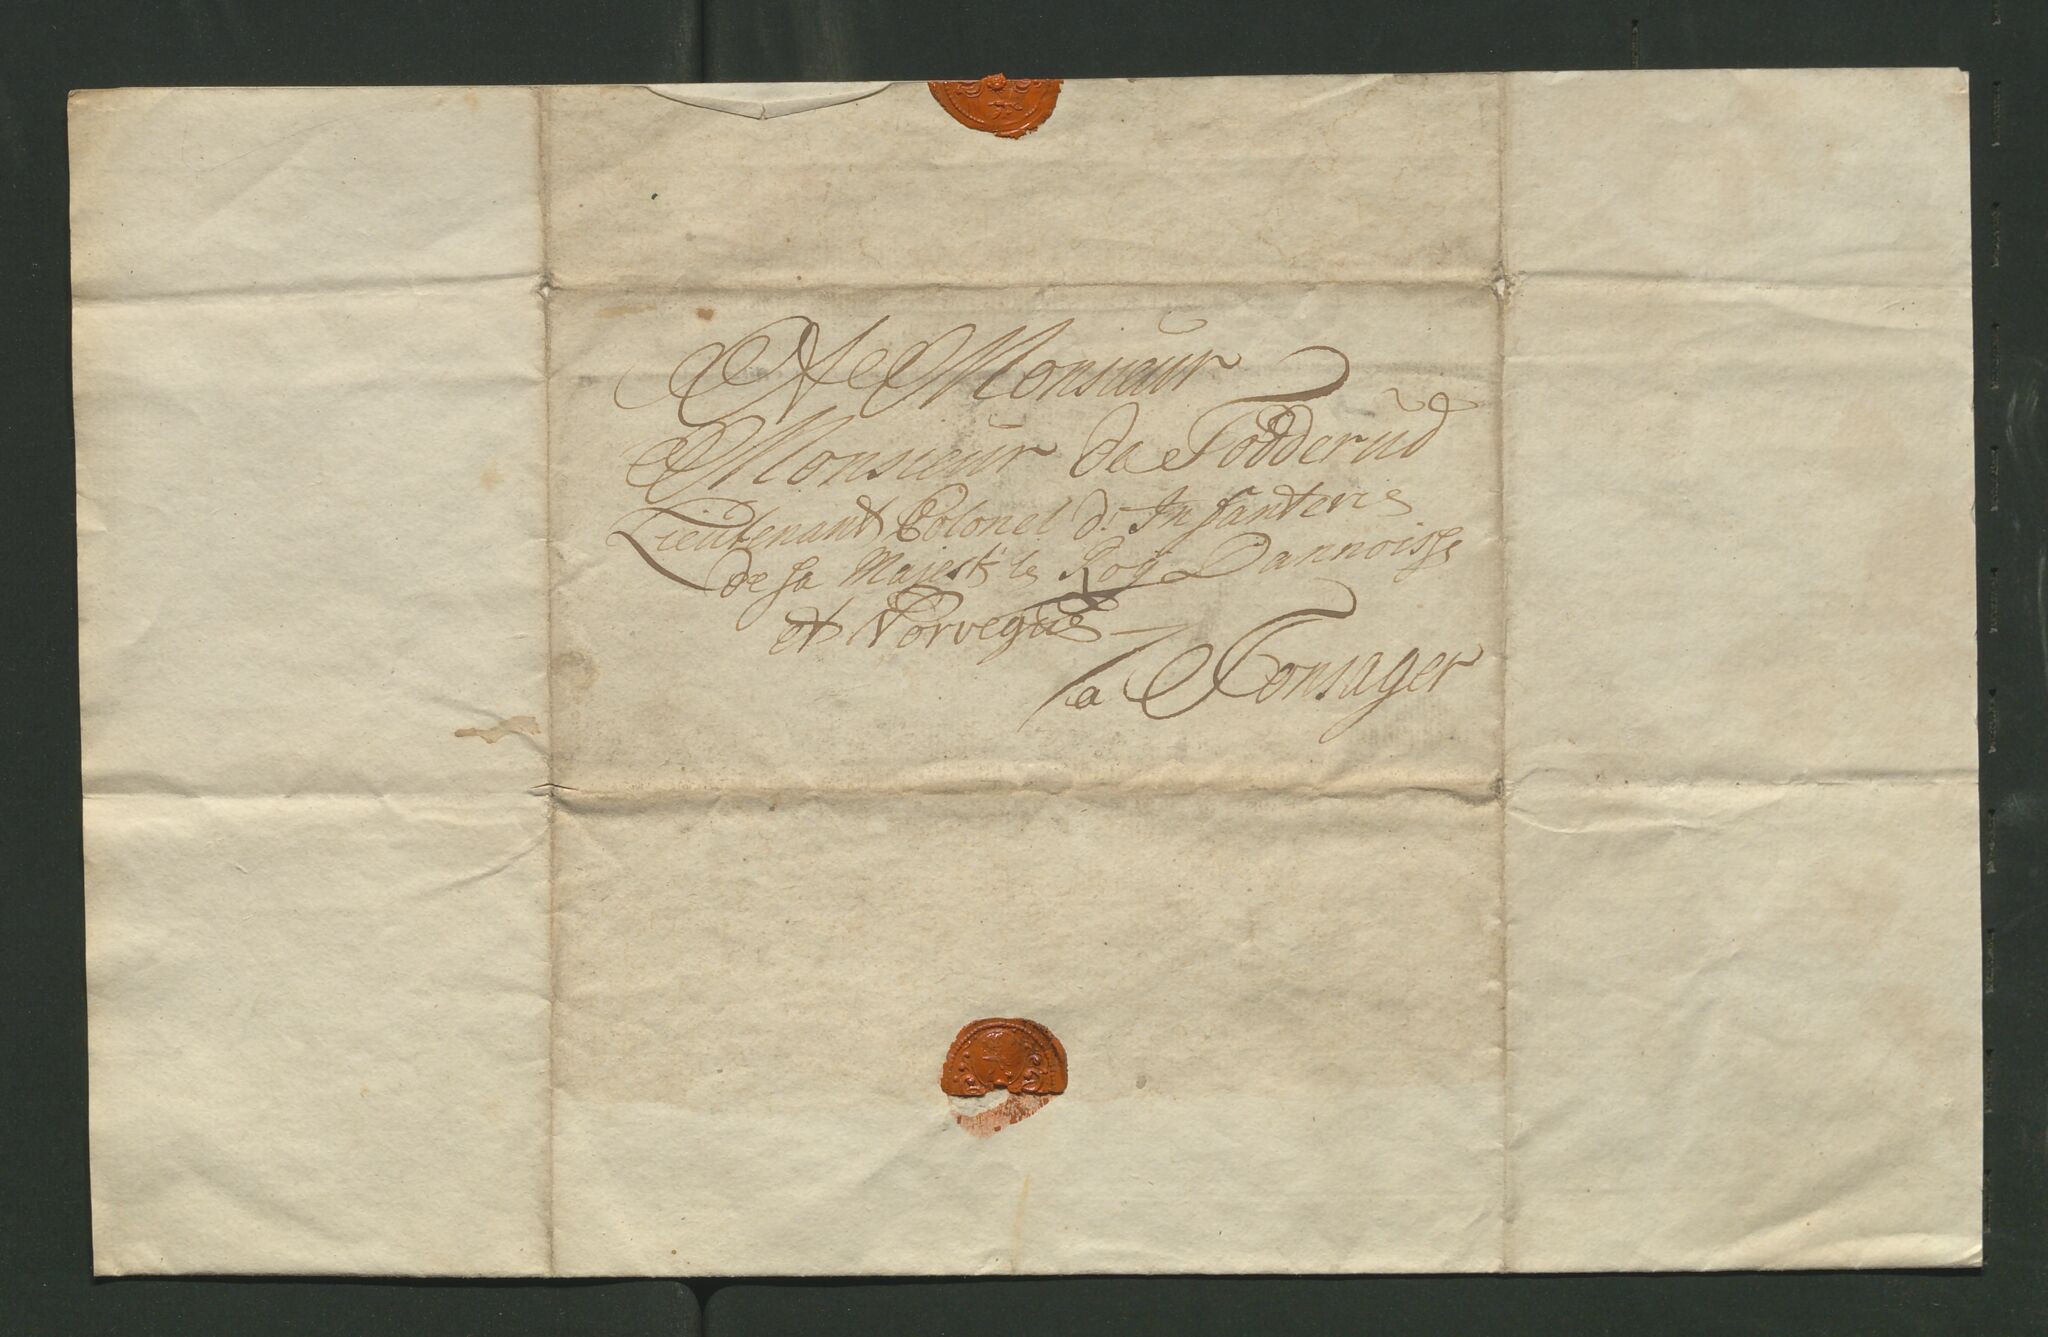 A Monsieur
Monsieur de Todderud
Lieutenant Colonel d'Infanterie
de sa Majesté le Roy Dannoisse
et Norvegue
a Tonsager